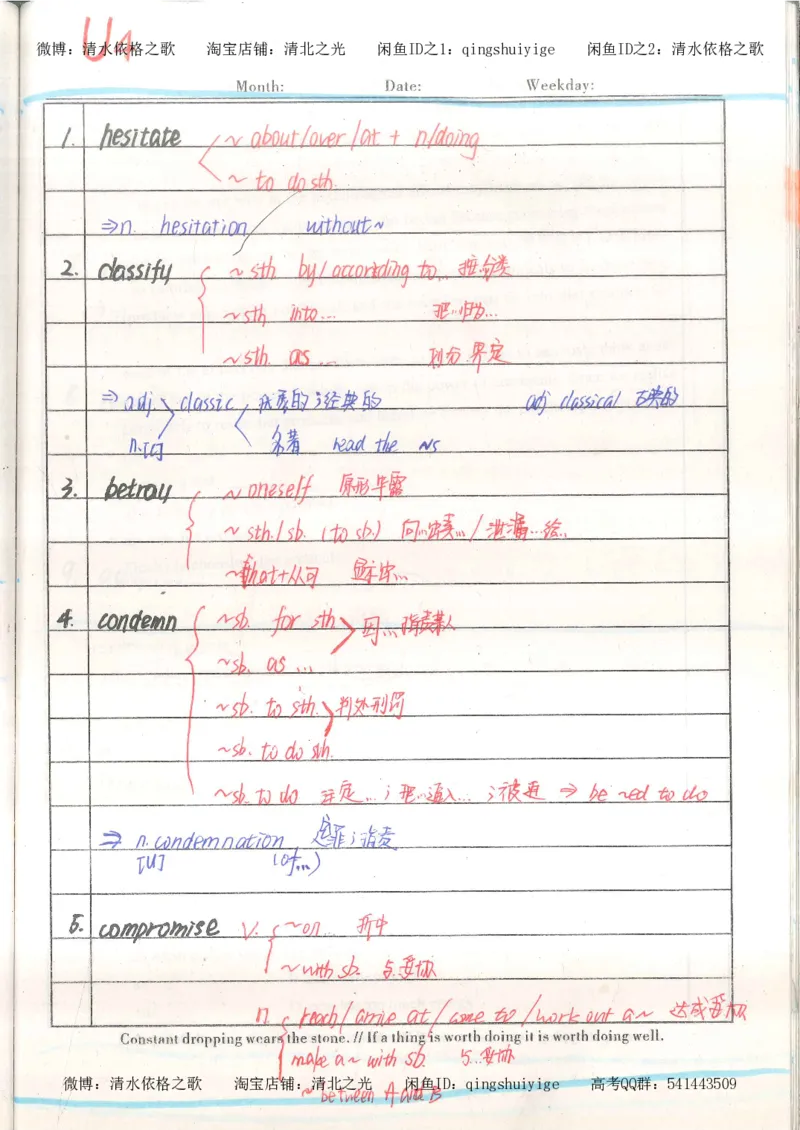 U4
微博：清水依格之歌 淘宝店铺：清北之光 闲鱼ID之1：qingshuiyige 闲鱼ID之2：清水依格之歌
Month: Date: Weekday:
1. hesitate ~ about/over/at + n/doing
~ to do sth.
⇒n. hesitation without~
2. classify ~ sth by/according to... 按..分类
~sth. into... 把..归为...
~sth. as ... 划分.界定
⇒ adj. classic 优秀的;经典的 adj classical 古典的
n.[C] 名著 read the ~s
3. betray ~ oneself 原形毕露
~ sth./sb. (to sb.) 向...出卖.../泄漏...给..
~that+从句 显示出...
4. condemn ~sb. for sth 因...指责某人
~sb. as ...
~sb. to sth. 判处刑罚
~sb. to do sth.
~sb. to do 注定...;把...逼入...;被逼 ⇒ be ~ed to do
⇒ n. condemnation 定罪;指责
[U] (of...)
5. compromise v. ~on... 折中
~with sb. 与..妥协
n. reach/arrive at/come to/work out a~ 达成妥协
Constant dropping wears the stone. // If a thing is worth doing it is worth doing well.
make a~ with sb. 与...妥协
微博：清水依格之歌 淘宝店铺：清北之光 闲鱼ID：qingshuiyige 高考QQ群：541443509
~ between A and B